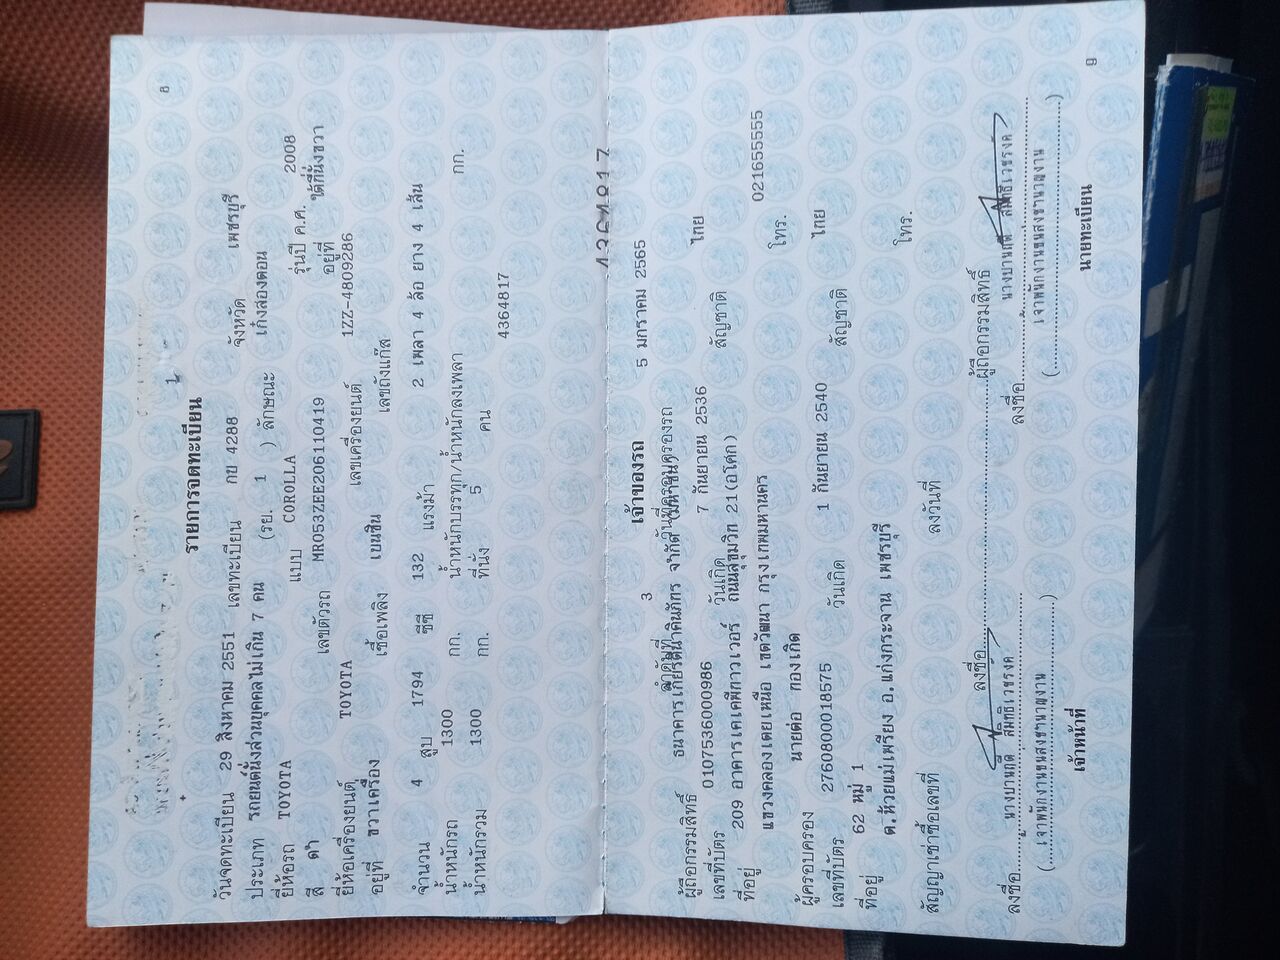 8
รายการจดทะเบียน 1
วันจดทะเบียน 29 สิงหาคม 2551 เลขทะเบียน กบ 4288 จังหวัด เพชรบุรี
ประเภท รถยนต์นั่งส่วนบุคคลไม่เกิน 7 คน (รย. 1 ) ลักษณะ เก๋งสองตอน
ยี่ห้อรถ TOYOTA แบบ COROLLA รุ่นปี ค.ศ. 2008
สี ดำ เลขตัวรถ MR053ZEE206110419 อยู่ที่ ใต้ที่นั่งขวา
ยี่ห้อเครื่องยนต์ TOYOTA เลขเครื่องยนต์ 1ZZ-4809286
อยู่ที่ ขวาเครื่อง เชื้อเพลิง เบนซิน เลขถังแก๊ส
จำนวน 4 สูบ 1794 ซีซี 132 แรงม้า 2 เพลา 4 ล้อ ยาง 4 เส้น
น้ำหนักรถ 1300 กก. น้ำหนักบรรทุก/น้ำหนักลงเพลา กก.
น้ำหนักรวม 1300 กก. ที่นั่ง 5 คน
4364817
4364817
เจ้าของรถ
ลำดับที่ 3 วันที่ครอบครองรถ 5 มกราคม 2565
ผู้ถือกรรมสิทธิ์ ธนาคารเกียรตินาคินภัทร จำกัด (มหาชน)
เลขที่บัตร 0107536000986 วันเกิด 7 กันยายน 2536 สัญชาติ ไทย
ที่อยู่ 209 อาคารเคเคพีทาวเวอร์ ถนนสุขุมวิท 21(อโศก)
แขวงคลองเตยเหนือ เขตวัฒนา กรุงเทพมหานคร โทร. 021655555
ผู้ครอบครอง นายต่อ ทองเกิด
เลขที่บัตร 2760800018575 วันเกิด 1 กันยายน 2540 สัญชาติ ไทย
ที่อยู่ 62 หมู่ 1
ต.ห้วยแม่เพรียง อ.แก่งกระจาน เพชรบุรี โทร.
สัญญาเช่าซื้อเลขที่ ลงวันที่
ลงชื่อ ผู้ถือกรรมสิทธิ์
ลงชื่อ ลงชื่อ
(เจ้าพนักงานขนส่งชำนาญงาน) (เจ้าพนักงานขนส่งชำนาญงาน)
เจ้าหน้าที่ นายทะเบียน
9